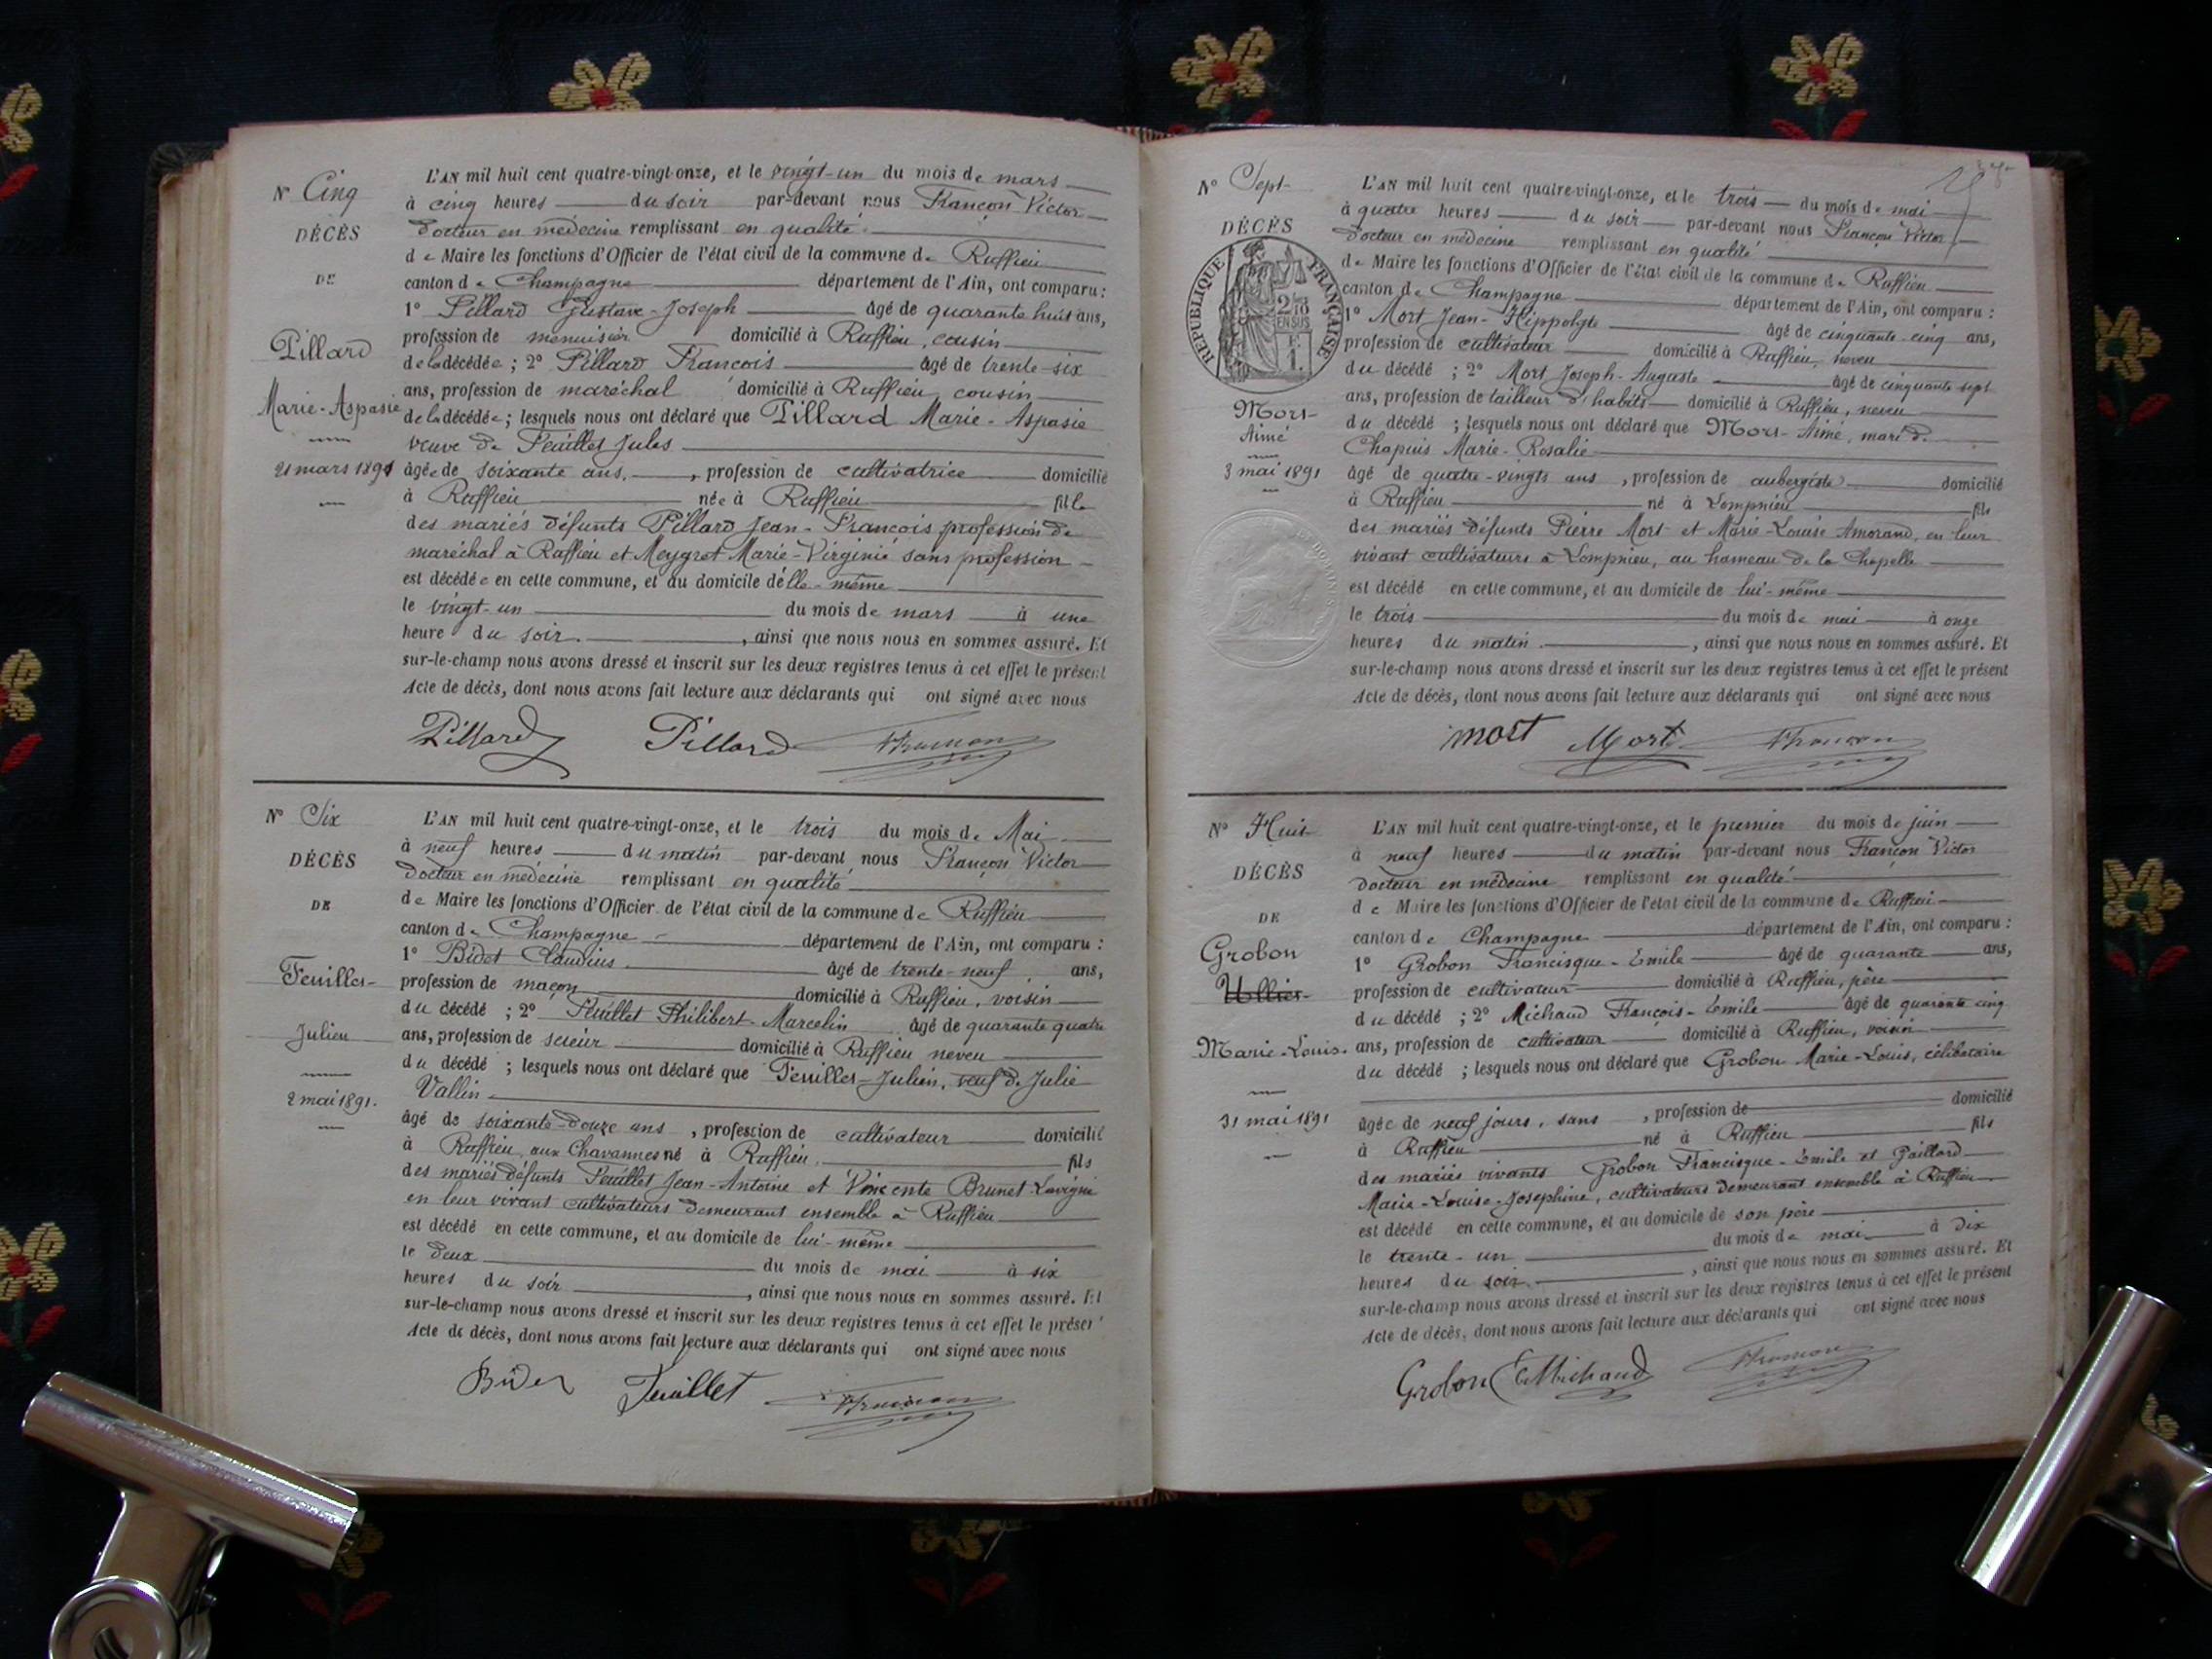 N° Cinq
DÉCÈS
DE
Pillard
Marie-Aspasie
21 mars 1891
L'AN mil huit cent quatre-vingt-onze, et le vingt-un du mois de mars
à cinq heures du soir par-devant nous Françon Victor
docteur en médecine remplissant en qualité
de Maire les fonctions d'Officier de l'état civil de la commune de Ruffieu
canton de Champagne département de l'Ain, ont comparu :
1° Pillard Gustave-Joseph âgé de quarante huit ans,
profession de menuisier domicilié à Ruffieu, cousin
de la décédée ; 2° Pillard François âgé de trente-six
ans, profession de maréchal domicilié à Ruffieu, cousin
de la décédée ; lesquels nous ont déclaré que Pillard Marie-Aspasie
veuve de Feuillet Jules
âgée de soixante ans, profession de cultivatrice domicilié
à Ruffieu née à Ruffieu fille
des mariés défunts Pillard Jean-François profession de
maréchal à Ruffieu et Meygret Marie-Virginie sans profession
est décédée en cette commune, et au domicile d'elle-même
le vingt-un du mois de mars à une
heure du soir, ainsi que nous nous en sommes assuré. Et
sur-le-champ nous avons dressé et inscrit sur les deux registres tenus à cet effet le présent
Acte de décès, dont nous avons fait lecture aux déclarants qui ont signé avec nous
Pillard Pillard Françon
N° Six
DÉCÈS
DE
Feuillet
Julien
2 mai 1891.
L'AN mil huit cent quatre-vingt-onze, et le trois du mois de Mai
à neuf heures du matin par-devant nous Françon Victor
docteur en médecine remplissant en qualité
de Maire les fonctions d'Officier de l'état civil de la commune de Ruffieu
canton de Champagne département de l'Ain, ont comparu :
1° Bidet Claudius âgé de trente-neuf ans,
profession de maçon domicilié à Ruffieu, voisin
du décédé ; 2° Feuillet Philibert-Marcelin âgé de quarante quatre
ans, profession de scieur domicilié à Ruffieu neveu
du décédé ; lesquels nous ont déclaré que Feuillet Julien, veuf de Julie
Vallin
âgé de soixante-douze ans, profession de cultivateur domicilié
à Ruffieu, aux Chavannes né à Ruffieu, fils
des mariés défunts Feuillet Jean-Antoine et Vincente Brunet-Lavigne
en leur vivant cultivateurs demeurant ensemble à Ruffieu
est décédé en cette commune, et au domicile de lui-même
le deux du mois de mai à six
heures du soir, ainsi que nous nous en sommes assuré. Et
sur-le-champ nous avons dressé et inscrit sur les deux registres tenus à cet effet le présent
Acte de décès, dont nous avons fait lecture aux déclarants qui ont signé avec nous
Bidet Feuillet Françon
N° Sept
DÉCÈS
RÉPUBLIQUE FRANÇAISE
2/10 EN SUS
Mort
Aimé
3 mai 1891
L'AN mil huit cent quatre-vingt-onze, et le trois du mois de mai
à quatre heures du soir par-devant nous Françon Victor
docteur en médecine remplissant en qualité
de Maire les fonctions d'Officier de l'état civil de la commune de Ruffieu
canton de Champagne département de l'Ain, ont comparu :
1° Mort Jean-Hippolyte âgé de cinquante-cinq ans,
profession de cultivateur domicilié à Ruffieu, neveu
du décédé ; 2° Mort Joseph-Auguste âgé de cinquante sept
ans, profession de tailleur d'habits domicilié à Ruffieu, neveu
du décédé ; lesquels nous ont déclaré que Mort-Aimé, mari de
Chapuis Marie-Rosalie
âgé de quatre-vingts ans, profession de aubergiste domicilié
à Ruffieu né à Lompnieu fils
des mariés défunts Pierre Mort et Marie-Louise Amorand, en leur
vivant cultivateurs à Lompnieu, au hameau de la Chapelle
est décédé en cette commune, et au domicile de lui-même
le trois du mois de mai à onze
heures du matin, ainsi que nous nous en sommes assuré. Et
sur-le-champ nous avons dressé et inscrit sur les deux registres tenus à cet effet le présent
Acte de décès, dont nous avons fait lecture aux déclarants qui ont signé avec nous
mort Mort Françon
N° Huit
DÉCÈS
DE
Grobon
Marie-Louis
31 mai 1891
L'AN mil huit cent quatre-vingt-onze, et le premier du mois de juin
à neuf heures du matin par-devant nous Françon Victor
docteur en médecine remplissant en qualité
de Maire les fonctions d'Officier de l'état civil de la commune de Ruffieu
canton de Champagne département de l'Ain, ont comparu :
1° Grobon Francisque-Emile âgé de quarante ans,
profession de cultivateur domicilié à Ruffieu, père
du décédé ; 2° Michaud François-Emile âgé de quarante cinq
ans, profession de cultivateur domicilié à Ruffieu, voisin
du décédé ; lesquels nous ont déclaré que Grobon Marie-Louis, célibataire
âgée de neuf jours, sans, profession de domicilié
à Ruffieu né à Ruffieu fils
des mariés vivants Grobon Francisque-Emile et Gaillard
Marie-Louise-Josephine, cultivateurs demeurant ensemble à Ruffieu
est décédé en cette commune, et au domicile de son père
le trente-un du mois de mai à dix
heures du soir, ainsi que nous nous en sommes assuré. Et
sur-le-champ nous avons dressé et inscrit sur les deux registres tenus à cet effet le présent
Acte de décès, dont nous avons fait lecture aux déclarants qui ont signé avec nous
Grobon E Michaud Françon